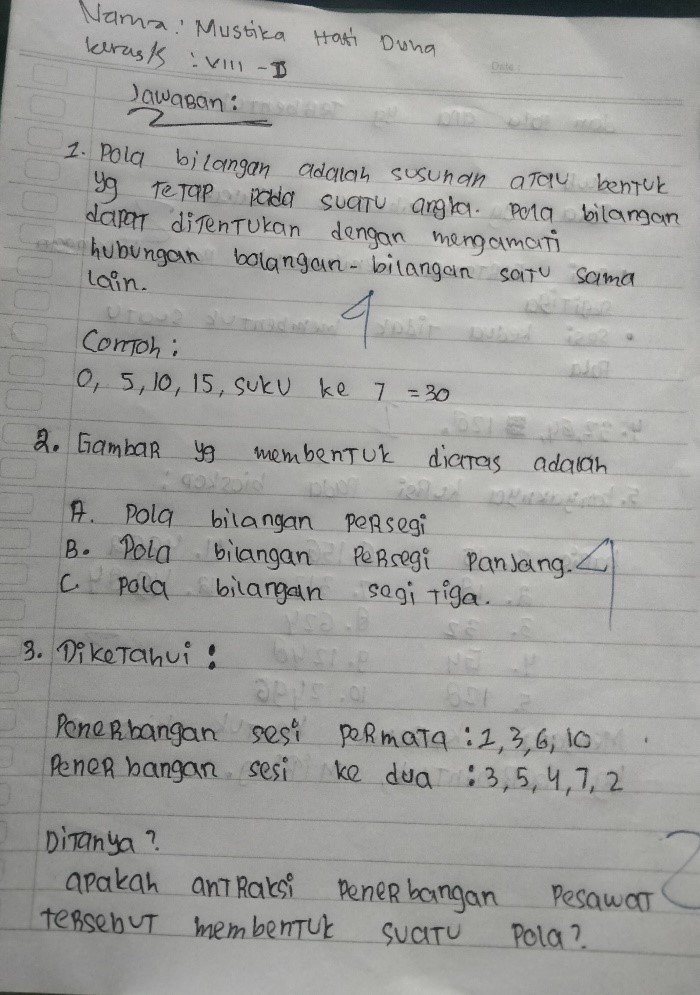 Nama: Mustika Hati Duha
: VIII - D
Date:
Jawaban:
1. Pola bilangan adalah susunan atau bentuk
yg tetap pada suatu angka. Pola bilangan
dapat ditentukan dengan mengamati
hubungan bolangan-bilangan satu sama
lain.
4
Contoh:
0, 5, 10, 15, suku ke 7 = 30
2. Gambar yg membentuk diatas adalah
A. Pola bilangan persegi
B. Pola bilangan persegi panjang.
4
C. Pola bilangan segi tiga.
3. Diketahui:
Penerbangan sesi permata : 1, 3, 6, 10
Penerbangan sesi ke dua : 3, 5, 4, 7, 2
Ditanya?
2
apakah antraksi penerbangan pesawat
tersebut membentuk suatu pola?